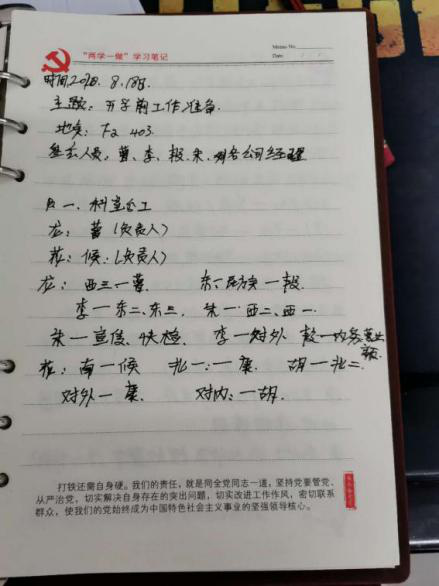 “两学一做”学习笔记
Memo No.
Date
时间2020.8.18日
主题：开学前工作准备.
地点：下2 403.
参会人员，曹、李、报、朱.
一、科室分工
龙：（负责人）
苑：候：（负责人）
龙：西三一
李一东二、东三. 朱一西二、西一.
朱一宣传、快检. 李一对外
苑：南一候 北一：一 胡一北二.
对外一 对内：一胡.
打铁还需自身硬。我们的责任，就是同全党同志一道，坚持党要管党、
从严治党，切实解决自身存在的突出问题，切实改进工作作风，密切联系
群众，使我们的党始终成为中国特色社会主义事业的坚强领导核心。